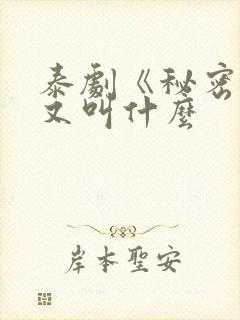 泰劇《秘密
又叫什麼
岸本聖安